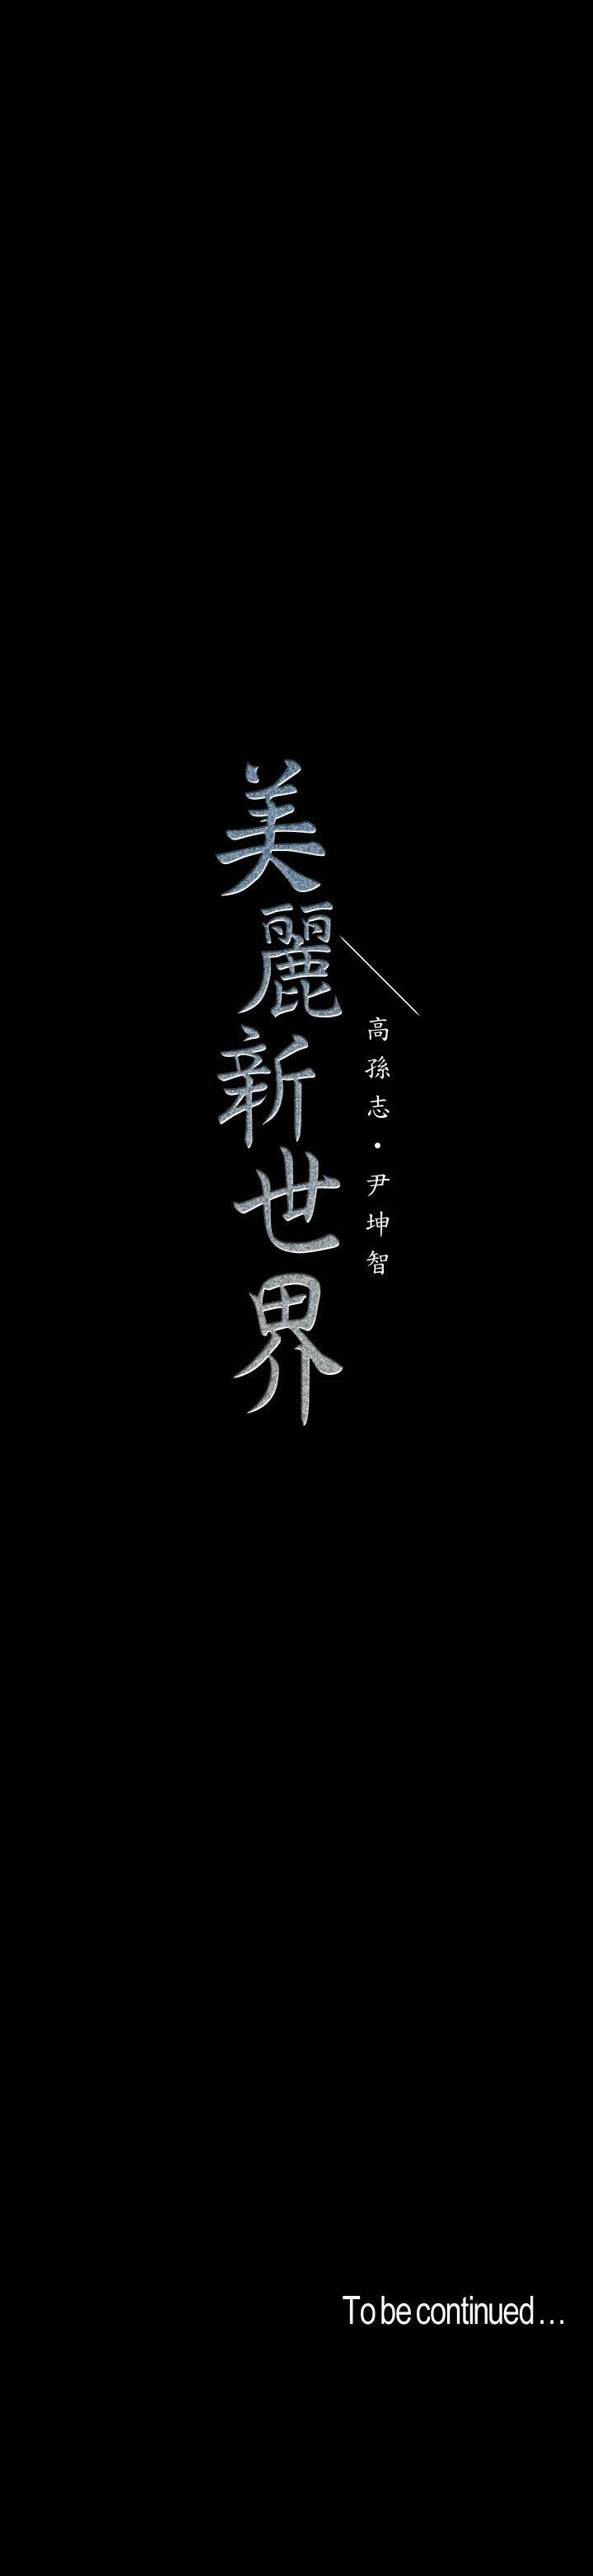 美麗新世界
高孫志・尹坤智
To be continued…